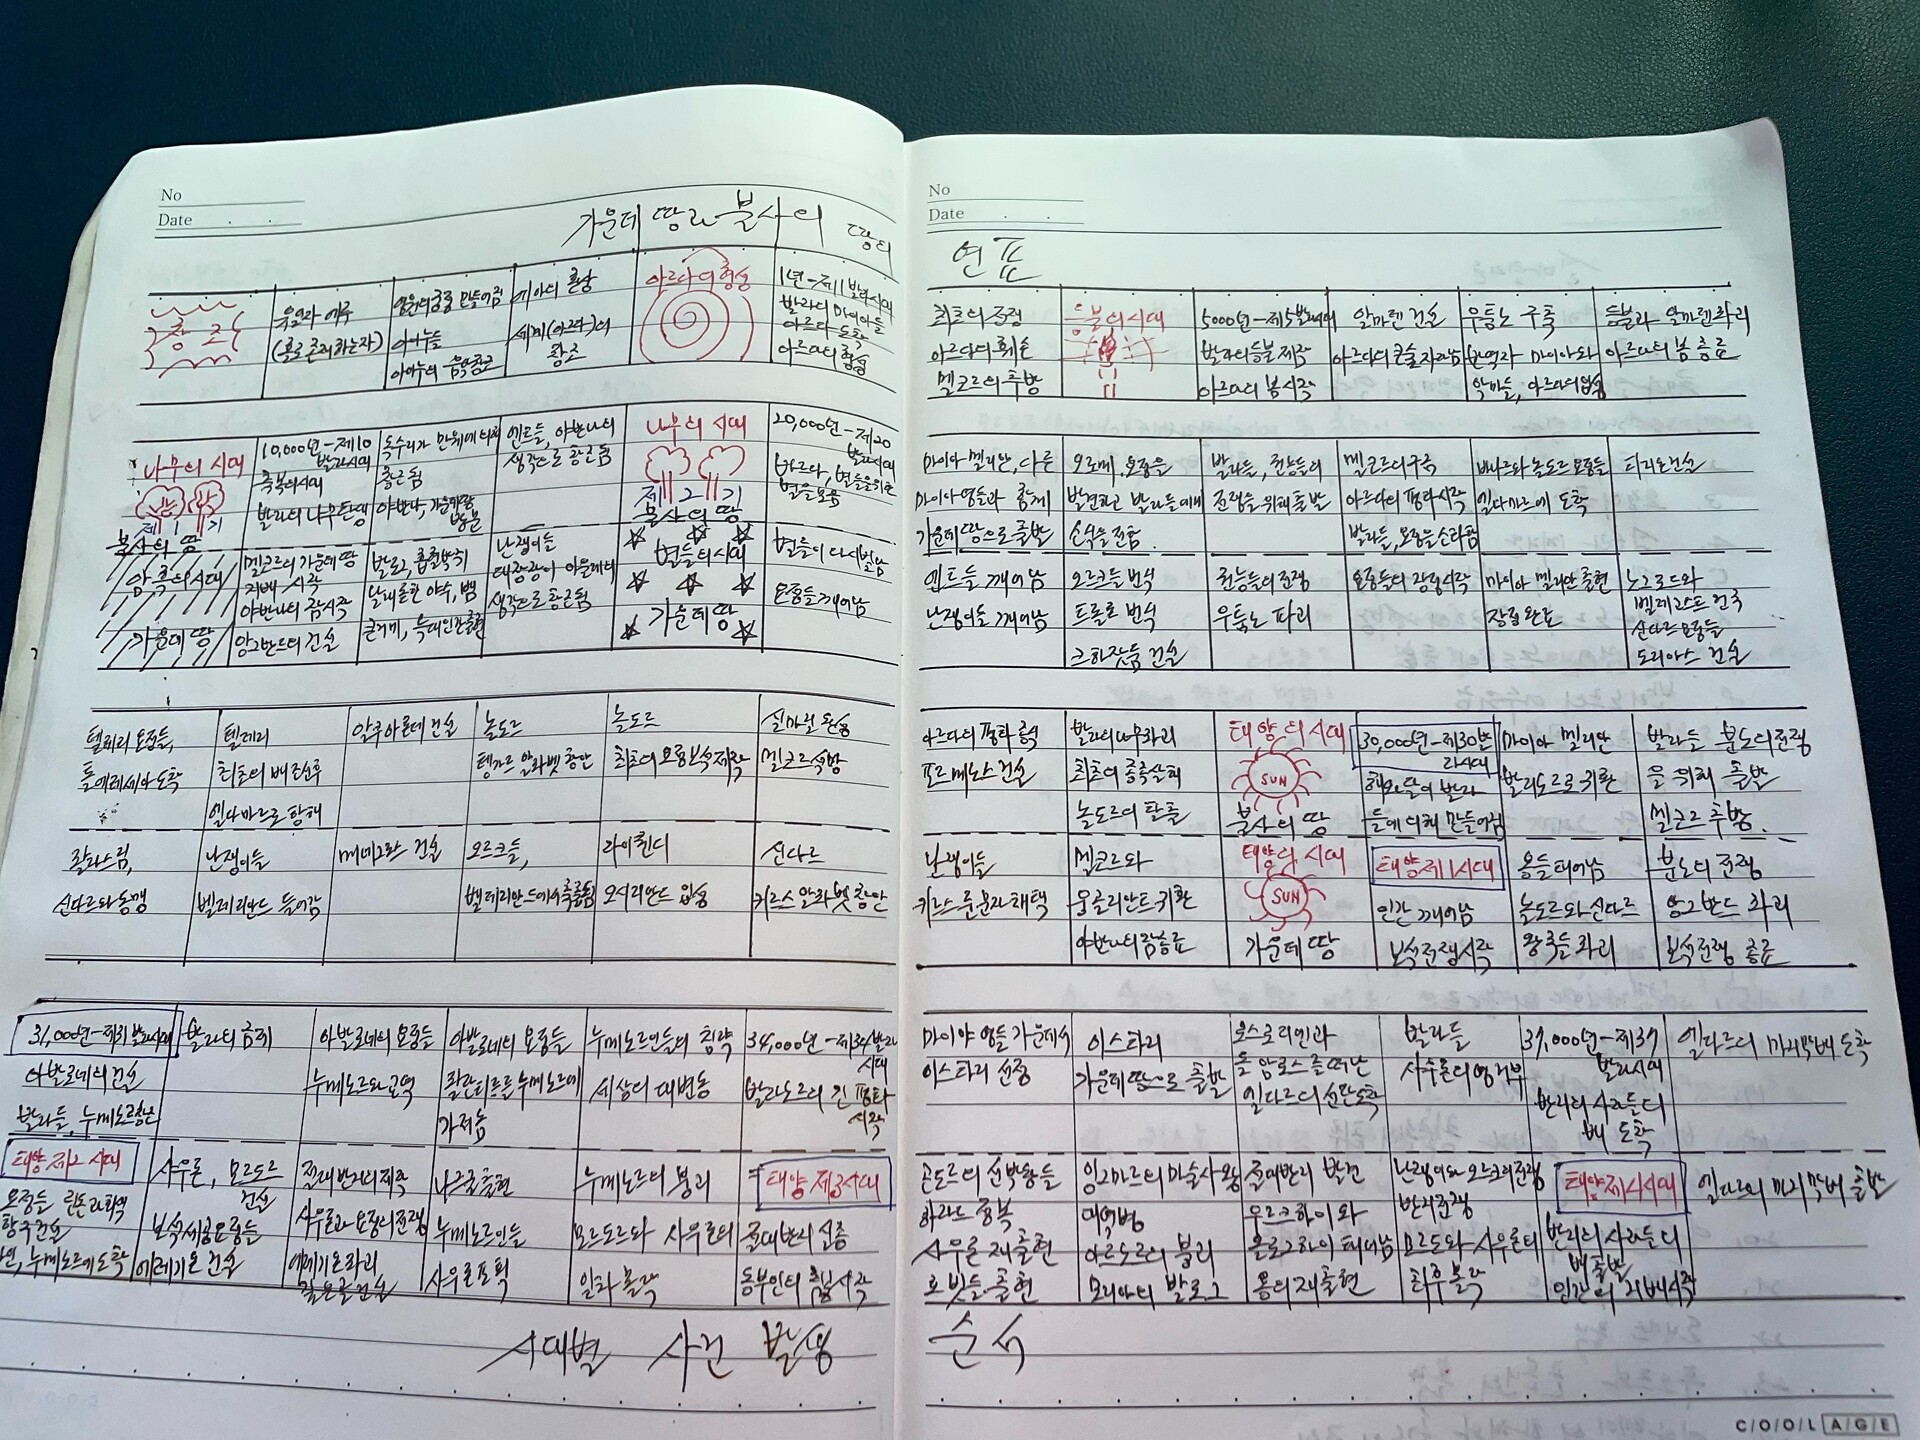 No
Date
가운데 땅과 불사의 땅의
창조
유일자 에루
(홀로 존재하는자)
영원의 궁정 만들어짐
아이누들
아이누의 음악 창조
에아의 환상
세계(아르다)의
창조
아르다의 형성
1년-제1 발라시대
발라와 마이아들
아르다 도착
아르다의 형성
나무의 시대
제1기
불사의 땅
10,000년-제10
발라시대
축복의 시대
발라의 나무 탄생
독수리가 만웨에 의해
창조됨
야반나, 가운데땅
방문
엔트들, 야반나의
생각으로 창조됨
나무의 시대
제2기
불사의 땅
20,000년-제20
발라시대
바르다, 별들을 위한
별을 모음
암흑의 시대
가운데 땅
멜코르의 가운데 땅
지배 시작
야반나의 잠 시작
앙그반드의 건설
발로그, 흡혈박쥐
날개 돋힌 야수, 뱀
큰거미, 늑대인간 출현
난쟁이들
대장장이 아울레의
생각으로 창조됨
별들의 시대
가운데 땅
별들이 다시 빛남
요정들 깨어남
텔레리 요정들,
톨 에레세아 도착
텔레리
최초의 배 건조후
엘다마르로 항해
알쿠아론데 건설
놀도르
텡과르 알파벳 창안
놀도르
최초의 요정 보석 제작
실마릴 완성
멜코르 석방
신다르와 동맹
난쟁이들
벨레리안드 들어감
메네그로스 건설
오르크들,
벨레리안드에서 축출됨
라이퀜디
오시리안드 입성
신다르
키르스 알파벳 창안
31,000년-제31 발라시대
아발로네의 건설
발라들, 누메노르 창조
발라의 금지
아발로네의 요정들
누메노르와 교역
아발로네의 요정들
팔란티르를 누메노르에
가져옴
누메노르인들의 침략
세상의 대변동
34,000년-제34 발라
시대
발라노르의 긴 평화
시작
태양 제2 시대
요정들 린돈과 회색
항구 건설
누메노르에 도착
사우론, 모르도르
건설
보석세공요정들
에레기온 건설
절대반지의 제작
사우론과 요정의 전쟁
에레기온 파괴,
깊은골 건설
나즈굴 출현
누메노르인들
사우론 포획
누메노르의 붕괴
모르도르와 사우론의
일차 몰락
태양 제3시대
절대반지 실종
동부인의 침입 시작
시대별 사건 발생
No
Date
연표
최초의 전쟁
아르다의 훼손
멜코르의 추방
등불의 시대
5000년-제5발라시대
발라의 등불 제작
아르다의 봄 시작
알마렌 건설
아르다의 큰 숲 자라남
우툼노 구축
반역자 마이아와
악마들, 아르다에 입성
등불과 알마렌 파괴
아르다의 봄 종료
마이아 멜리안, 다른
마이아 영들과 함께
가운데땅으로 출발
오로메, 요정을
발견하고 발라들에게
소식을 전함
발라들, 권능들의
전쟁을 위해 출발
멜코르의 구속
아르다의 평화 시작
발라들, 요정을 소환함
바냐르와 놀도르 요정들
엘다마르에 도착
티리온 건설
엔트들 깨어남
난쟁이들 깨어남
오르크들 번식
트롤로 번식
크하잣둠 건설
권능들의 전쟁
우툼노 파괴
요정들의 장정 시작
마이아 멜리안 출현
장정 완료
노그로드와
벨레고스트 건축
신다르 요정들
도리아스 건설
아르다의 평화 종식
포르메노스 건설
발라의 나무 파괴
최초의 종족 살해
놀도르의 탈출
태양의 시대
SUN
불사의 땅
30,000년-제30발
라시대
해와 달이 발라
들에 의해 만들어짐
마이아 멜리안
발리노르로 귀환
발라들 분노의 전쟁
을 위해 출발
멜코르 추방
난쟁이들
키르스 룬 문자 채택
멜코르와
웅골리안트 귀환
야반나의 잠 종료
태양의 시대
SUN
가운데 땅
태양 제1시대
인간 깨어남
보석전쟁 시작
용들 태어남
놀도르와 신다르
왕국들 파괴
분노의 전쟁
앙그반드 파괴
보석전쟁 종료
마이아 영들 가운데서
이스타리 선정
이스타리
가운데땅으로 출발
로스로리엔과
돌 암로스를 떠난
엘다르의 선단 도착
발라들
사우론의 영 거부
37,000년-제37
발라시대
반지의 사자들의
배 도착
엘다르의 마지막 배 도착
곤도르의 선박왕들
하라드 정복
사우론 재출현
호빗들 출현
앙그마르의 마술사왕
대역병
아르노르의 붕괴
모리아의 발로그
절대반지 발견
우르크하이와
올로그하이 태어남
용의 재출현
난쟁이와 오르크의 전쟁
반지전쟁
모르도르와 사우론의
최후 몰락
태양 제4시대
반지의 사자들의
배 출발
인간의 지배 시작
엘다르의 마지막 배 출발
순서
COOL AGE